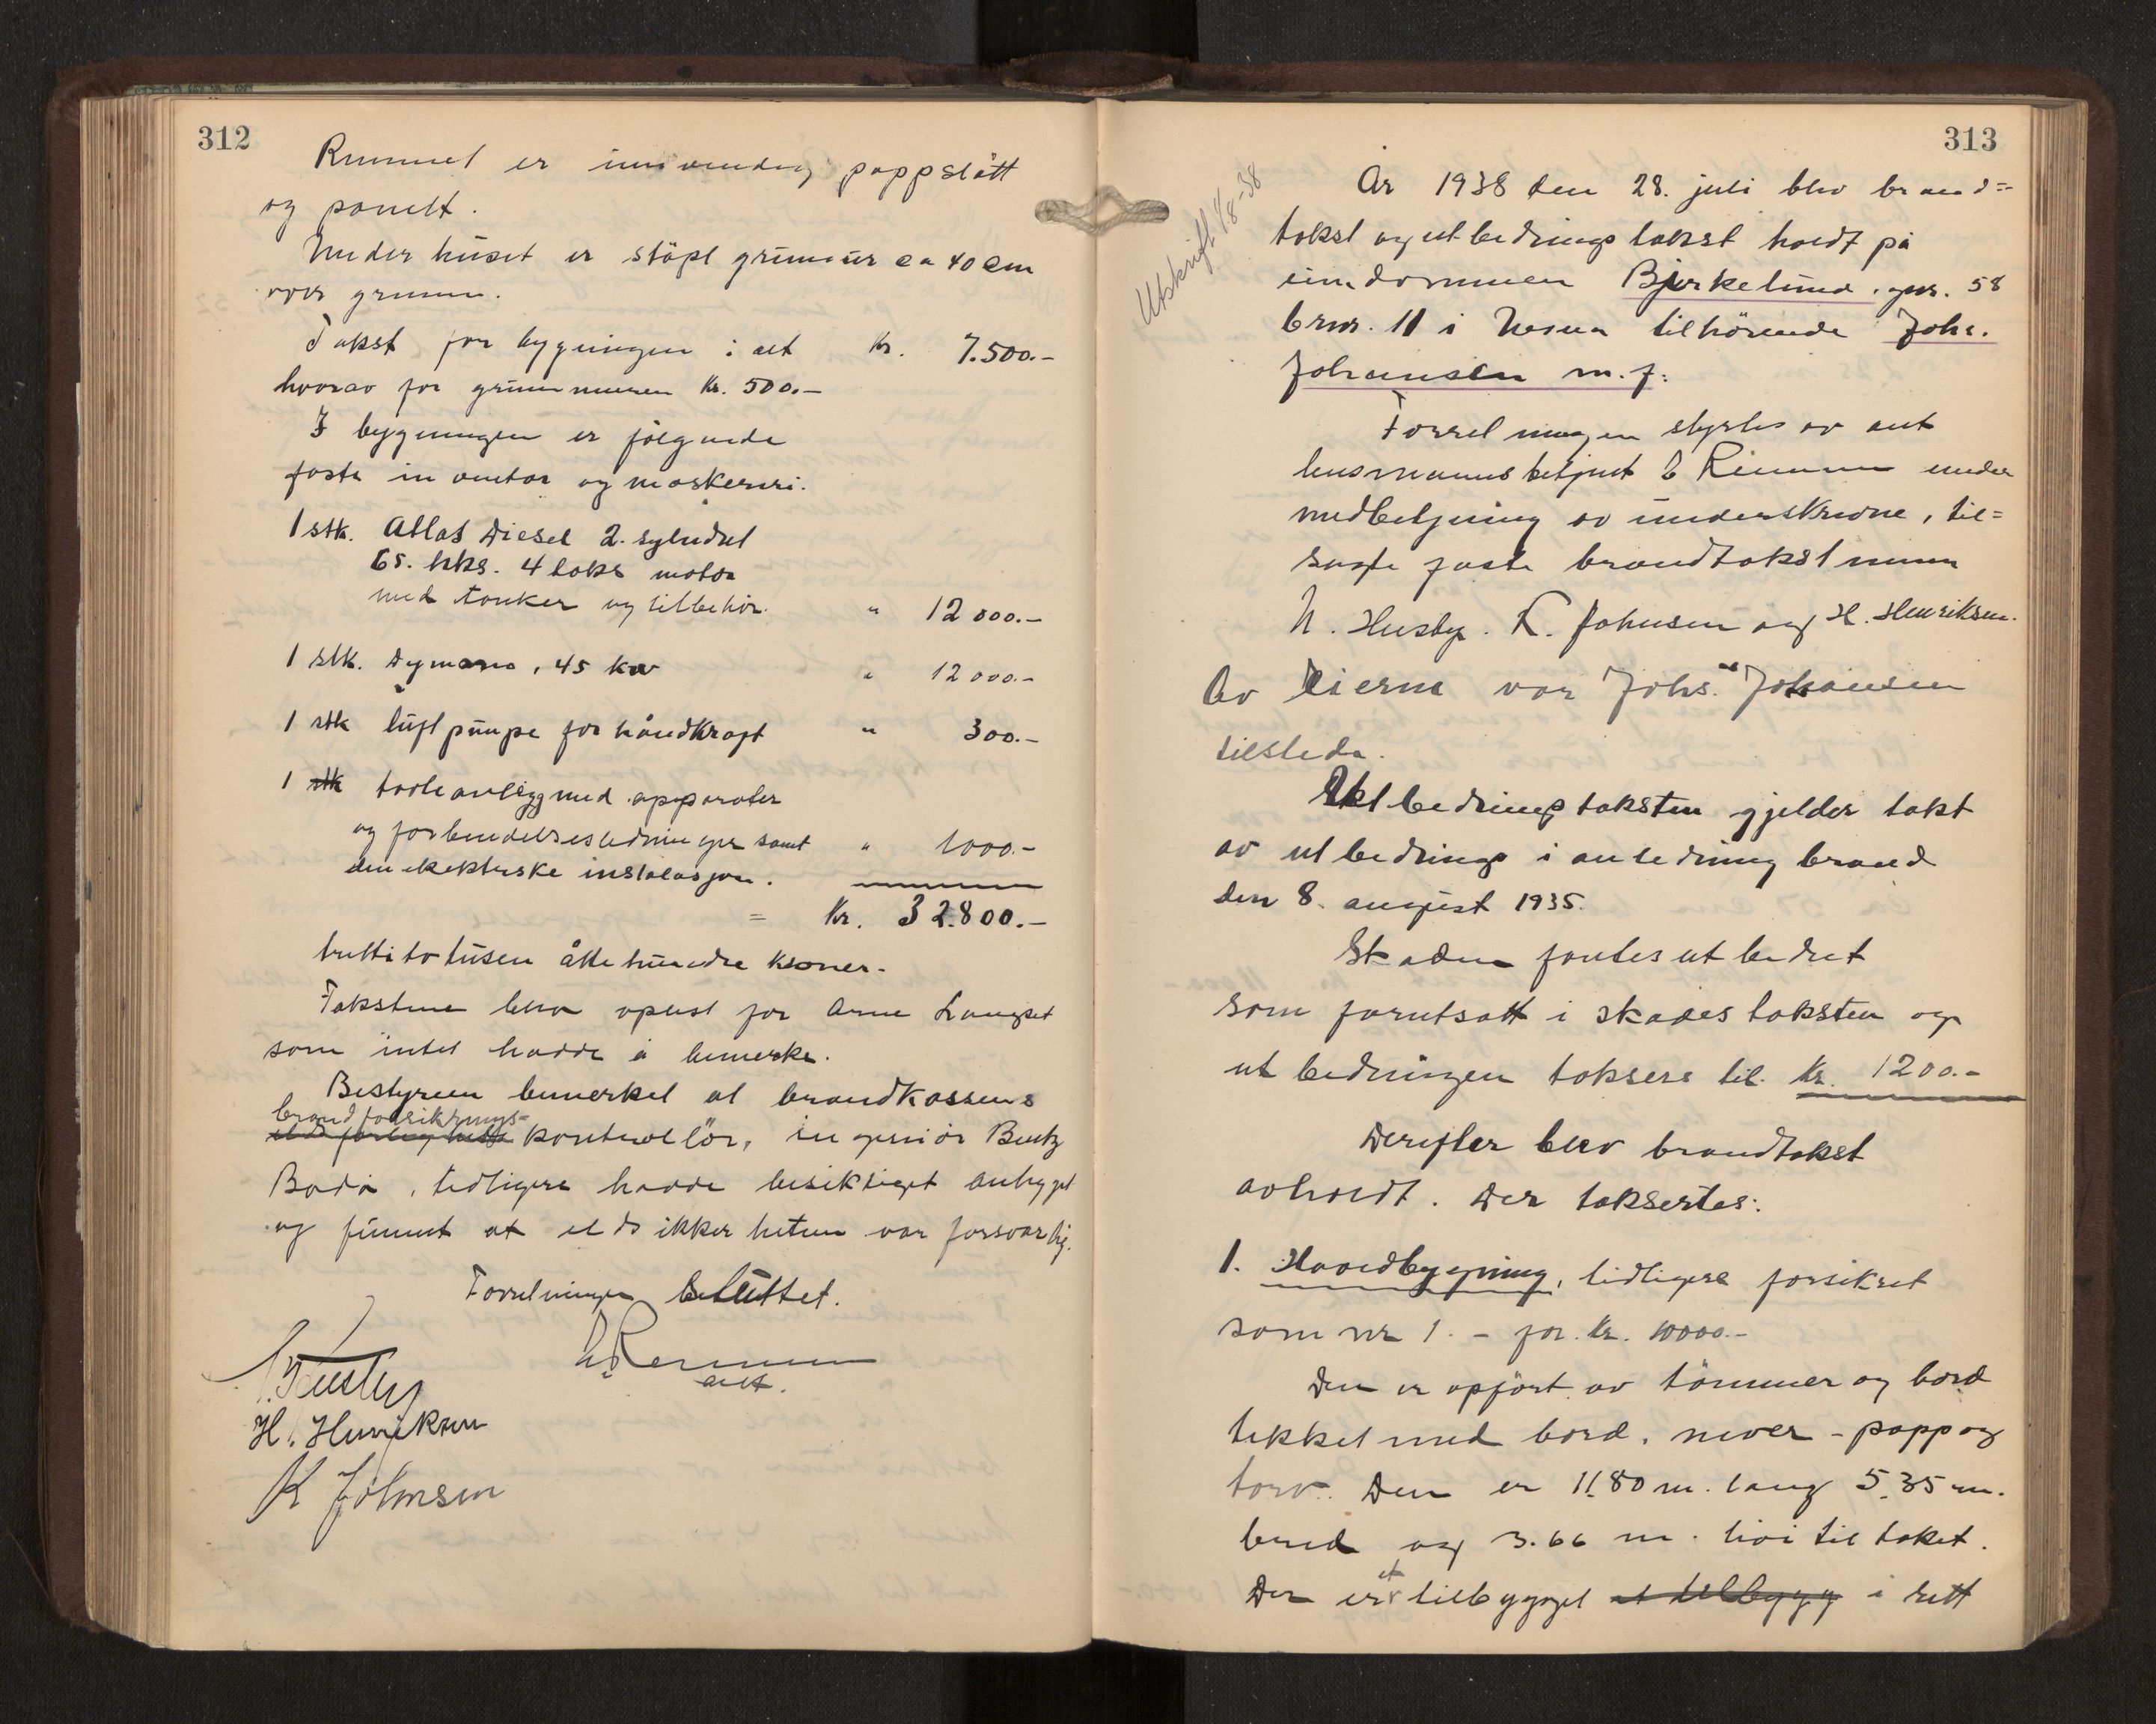 312
Rummet er innvendig pappslått
og panelt.
Under huset er stöpt grunmur ca 40 cm
over grunnen.
Takst for bygningen i alt Kr. 7.500.-
hvorav for grunnmuren Kr. 500.-
I bygningen er følgende
faste inventar og maskerieri.
1 stk. Atlas Diesel 2. sylindret
65. hks. 4 takts motor
med tanker og tilbehör. " 12 000.-
1 stk. Dymamo, 45 kw " 12 000.-
1 stk luftpumpe for håndkraft " 300.-
1 stk tavleanlegg med apparater
og forbindelsesledninger samt " 1000.-
den elektriske instalasjon.
= Kr. 32.800.-
trettitotusen åttehundre kroner.
Takstene blev oplest for Arne Langset
som intet hadde å bemerke.
Bestyreren bemerket at brandkassens
brandforsikrings-
kontrollör, ingeniör Bentz
Bodö, tidligere hadde besiktiget anbygget
og funnet at eldsikkerheten var forsvarlig.
Forretningen besluttet.
N. Husby
Remmen
ass.
H. Henriksen
K Johnsen
313
Utskrift 4/8-38
År 1938 den 28. juli blev brand=
takst og utbedringstakst holdt på
eiendommen Bjerkelund, gnr. 58
brnr. 11 i Nesna tilhörende Johs.
Johansen m. f.
Forretningen styrtes av aut
lensmannsbetjent Remmen under
medbetjening av underskrevne, til=
sagte faste brandtakstmenn
N. Husby. K. Johnsen og H. Henriksen.
Av eierne var Johs. Johansen
tilstede.
Utbedringstaksten gjelder takst
av utbedring i anledning brand
den 8. august 1935.
Skaden fantes utbedret
som forutsatt i skadestaksten og
utbedringen takseres til. Kr. 1200.-
Derefter blev brandtakst
avholdt. Der taksertes:
1. Hovedbygning, tidligere forsikret
som nr 1. - for. Kr. 10000.-
Den er opfört av tömmer og bord
tekket med bord, never - papp og
torv. Den er 11.80 m. lang 5.35 m.
bred og 3.66 m. höi til taket.
Der er et tilbygget et tilbygg i rett